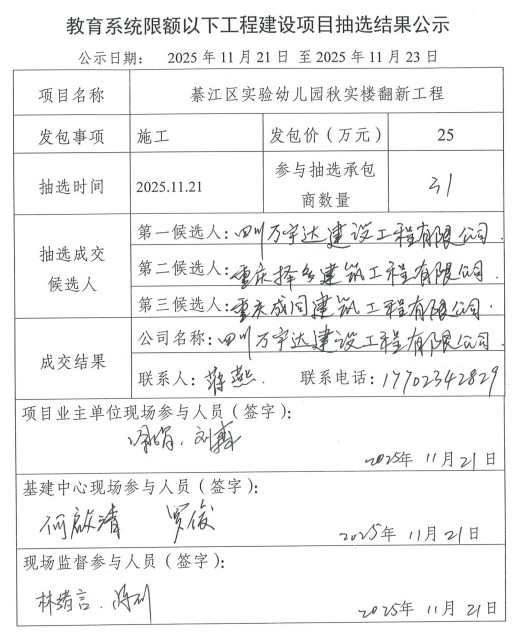 教育系统限额以下工程建设项目抽选结果公示
公示日期： 2025 年 11 月 21 日 至 2025 年 11 月 23 日
项目名称 綦江区实验幼儿园秋实楼翻新工程
发包事项 施工 发包价（万元） 25
抽选时间 2025.11.21 参与抽选承包商数量 31
抽选成交候选人
第一候选人：四川万宇达建设工程有限公司.
第二候选人：重庆择乡建筑工程有限公司.
第三候选人：重庆成闰建筑工程有限公司.
成交结果
公司名称：四川万宇达建设工程有限公司.
联系人：蒋燕. 联系电话：17702342829
项目业主单位现场参与人员（签字）：
刘
2025年 11月21日
基建中心现场参与人员（签字）：
何啟清 罗俊
2025年 11月21日
现场监督参与人员（签字）：
林绪言.
2025年 11月21日